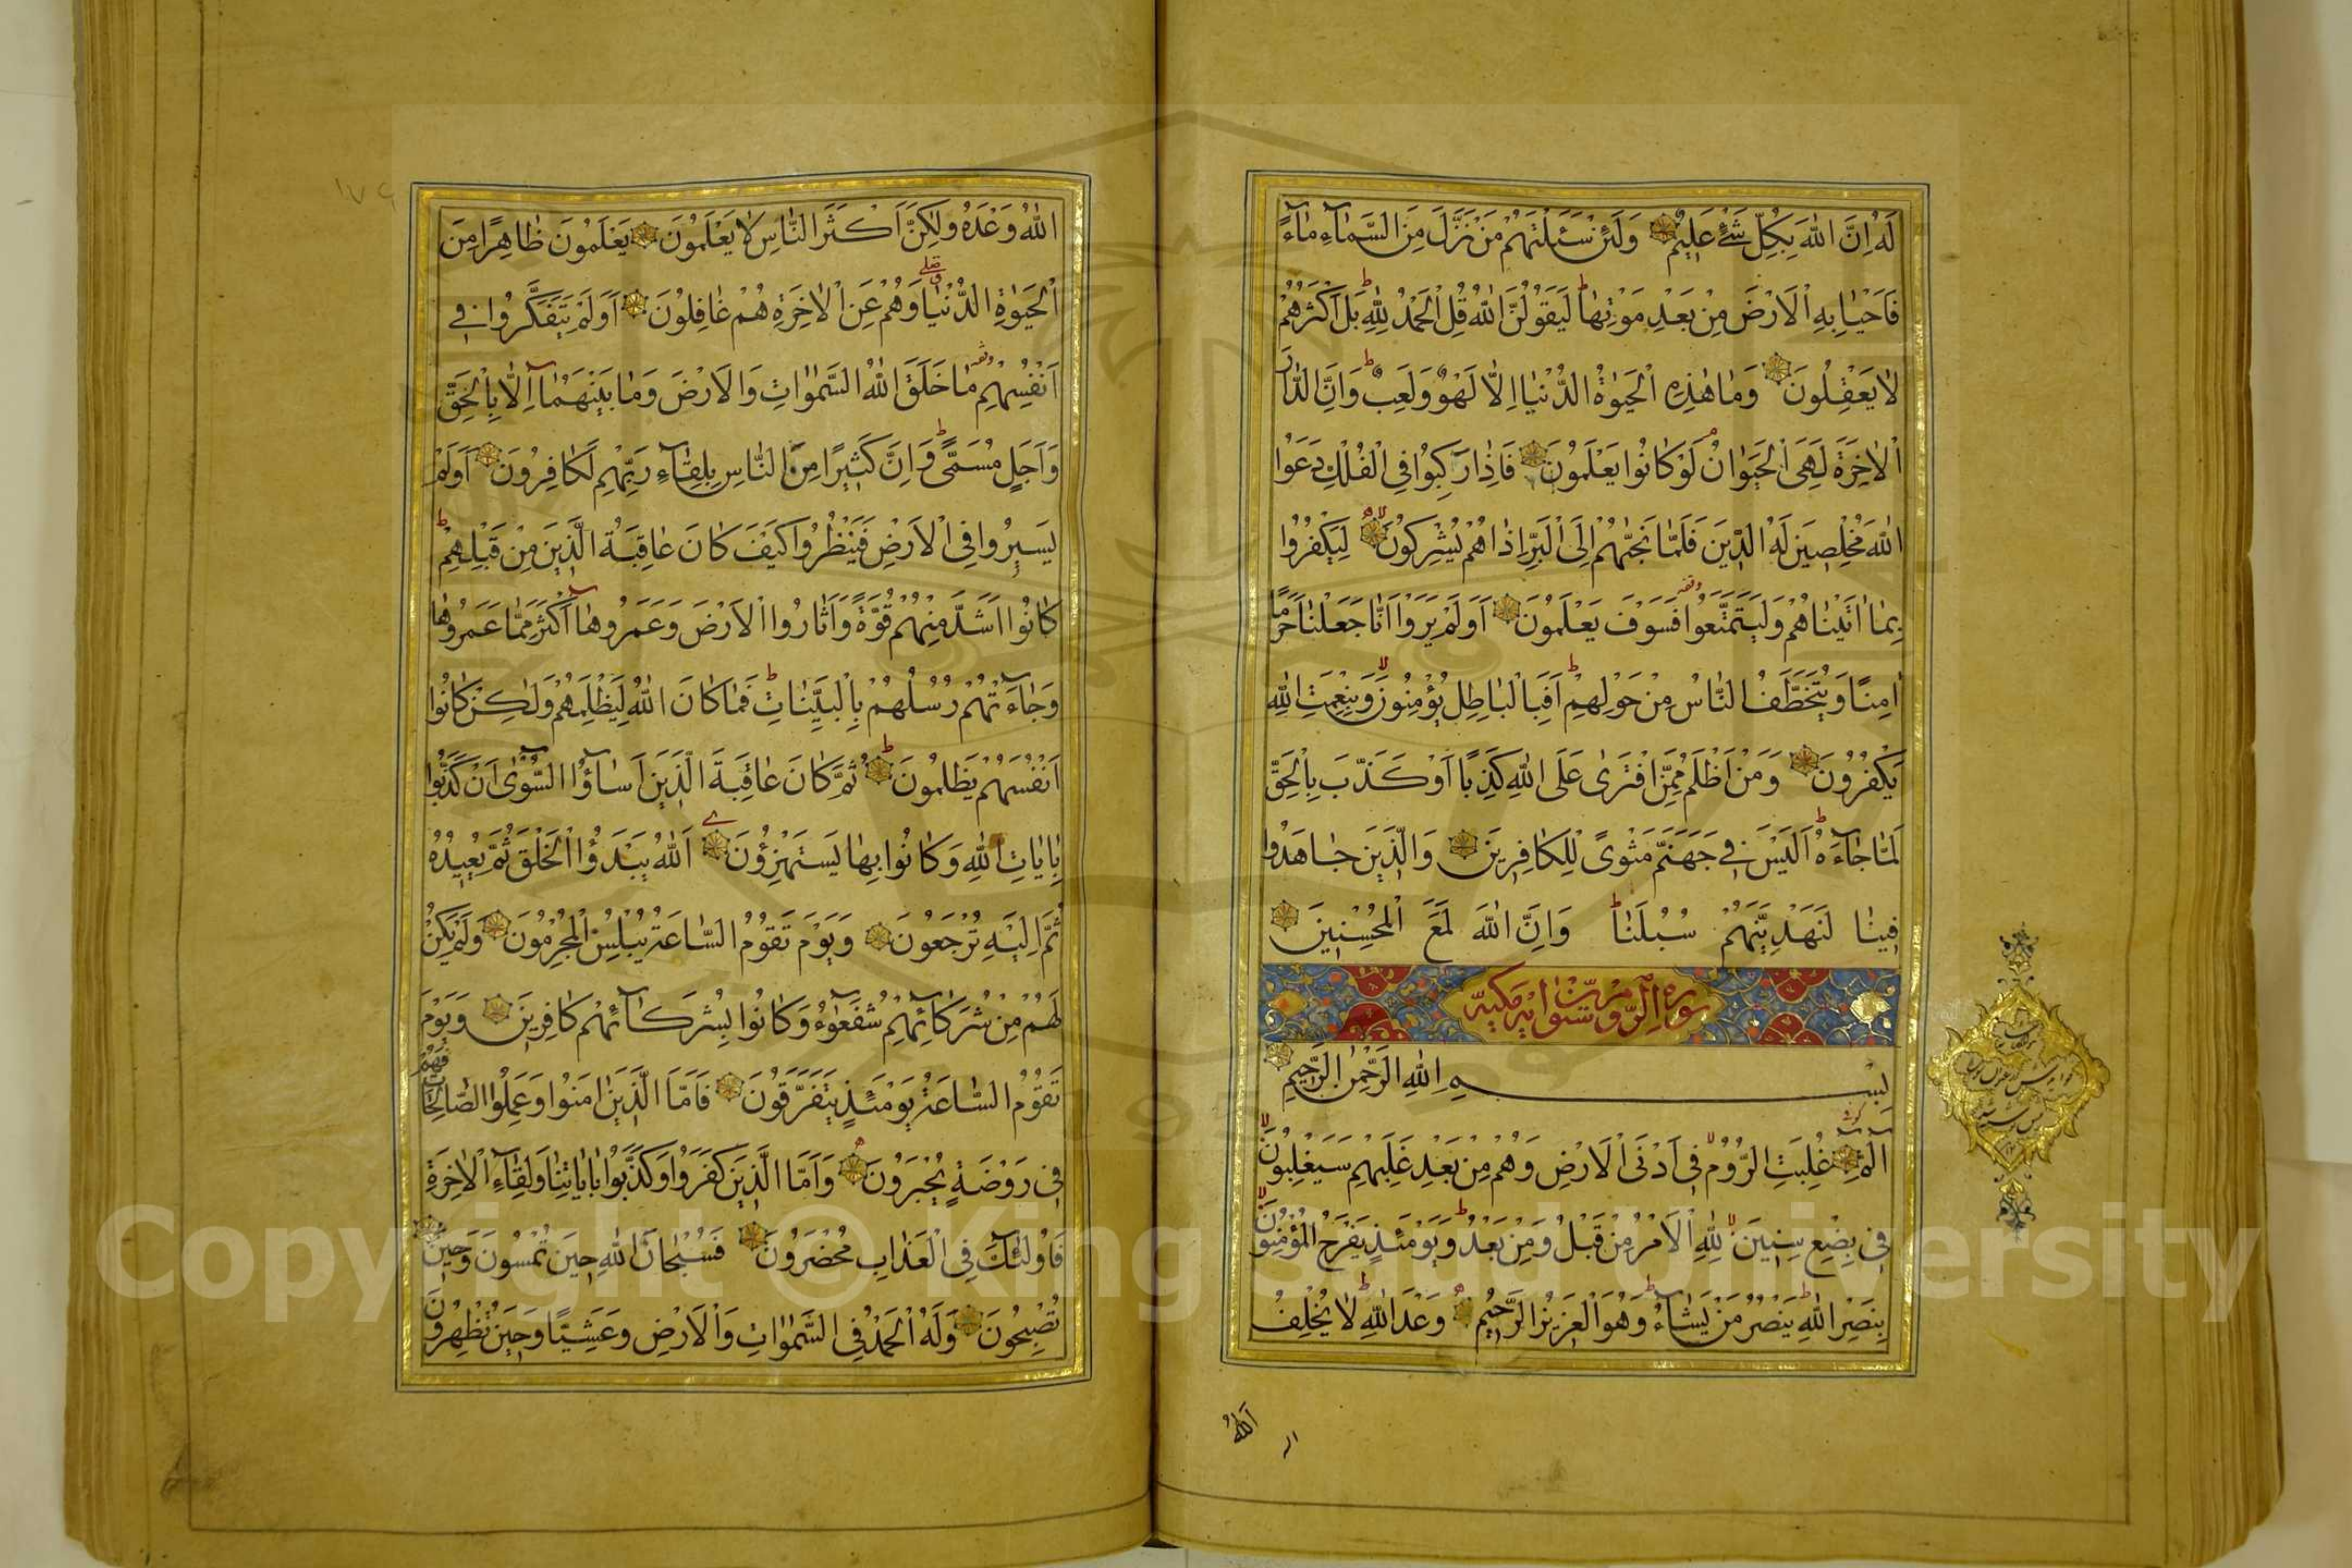 لَهُ اِنَّ اللّٰهَ بِكُلِّ شَىْءٍ عَلِيمٌ وَلَئِنْ سَئَلْتَهُمْ مَنْ نَزَّلَ مِنَ السَّمَاۤءِ مَاۤءً
فَاَحْيَا بِهِ الْاَرْضَ مِنْ بَعْدِ مَوْتِهَا ط لَيَقُولُنَّ اللّٰهُ قُلِ الْحَمْدُ لِلّٰهِ ط بَلْ اَكْثَرُهُمْ
لَا يَعْقِلُونَ وَمَا هٰذِهِ الْحَيٰوةُ الدُّنْيَا اِلَّا لَهْوٌ وَلَعِبٌ ط وَاِنَّ الدَّارَ
الْاٰخِرَةَ لَهِىَ الْحَيَوَانُ م لَوْ كَانُوا يَعْلَمُونَ فَاِذَا رَكِبُوا فِى الْفُلْكِ دَعَوُا
اللّٰهَ مُخْلِصِينَ لَهُ الدِّينَ فَلَمَّا نَجّٰيهُمْ اِلَى الْبَرِّ اِذَا هُمْ يُشْرِكُونَ لا لِيَكْفُرُوا
بِمَا اٰتَيْنَاهُمْ وَلِيَتَمَتَّعُوا وقفه فَسَوْفَ يَعْلَمُونَ اَوَلَمْ يَرَوْا اَنَّا جَعَلْنَا حَرَمًا
اٰمِنًا وَيُتَخَطَّفُ النَّاسُ مِنْ حَوْلِهِمْ ط اَفَبِالْبَاطِلِ يُؤْمِنُونَ لا وَبِنِعْمَتِ اللّٰهِ
يَكْفُرُونَ وَمَنْ اَظْلَمُ مِمَّنِ افْتَرٰى عَلَى اللّٰهِ كَذِبًا اَوْ كَذَّبَ بِالْحَقِّ
لَمَّا جَاۤءَهُ ط اَلَيْسَ فِى جَهَنَّمَ مَثْوًى لِلْكَافِرِينَ وَالَّذِينَ جَاهَدُوا
فِينَا لَنَهْدِيَنَّهُمْ سُبُلَنَا ط وَاِنَّ اللّٰهَ لَمَعَ الْمُحْسِنِينَ
سورة الروم ستون اية مكية
بِسْمِ اللّٰهِ الرَّحْمٰنِ الرَّحِيمِ
الٓمٓ غُلِبَتِ الرُّومُ لا فِى اَدْنَى الْاَرْضِ وَهُمْ مِنْ بَعْدِ غَلَبِهِمْ سَيَغْلِبُونَ لا
فِى بِضْعِ سِنِينَ لا لِلّٰهِ الْاَمْرُ مِنْ قَبْلُ وَمِنْ بَعْدُ ط وَيَوْمَئِذٍ يَفْرَحُ الْمُؤْمِنُونَ لا
بِنَصْرِ اللّٰهِ ط يَنْصُرُ مَنْ يَشَاۤءُ ط وَهُوَ الْعَزِيزُ الرَّحِيمُ وَعْدَ اللّٰهِ ط لَا يُخْلِفُ
اللّٰهُ
اللّٰهُ وَعْدَهُ وَلٰكِنَّ اَكْثَرَ النَّاسِ لَا يَعْلَمُونَ يَعْلَمُونَ ظَاهِرًا مِنَ
الْحَيٰوةِ الدُّنْيَا وَهُمْ عَنِ الْاٰخِرَةِ هُمْ غَافِلُونَ اَوَلَمْ يَتَفَكَّرُوا فِى
اَنْفُسِهِمْ وقفه مَا خَلَقَ اللّٰهُ السَّمٰوَاتِ وَالْاَرْضَ وَمَا بَيْنَهُمَا اِلَّا بِالْحَقِّ
وَاَجَلٍ مُسَمًّى ط وَاِنَّ كَثِيرًا مِنَ النَّاسِ بِلِقَاۤءِ رَبِّهِمْ لَكَافِرُونَ اَوَلَمْ
يَسِيرُوا فِى الْاَرْضِ فَيَنْظُرُوا كَيْفَ كَانَ عَاقِبَةُ الَّذِينَ مِنْ قَبْلِهِمْ ط
كَانُوا اَشَدَّ مِنْهُمْ قُوَّةً وَاَثَارُوا الْاَرْضَ وَعَمَرُوهَا اَكْثَرَ مِمَّا عَمَرُوهَا
وَجَاۤءَتْهُمْ رُسُلُهُمْ بِالْبَيِّنَاتِ ط فَمَا كَانَ اللّٰهُ لِيَظْلِمَهُمْ وَلٰكِنْ كَانُوا
اَنْفُسَهُمْ يَظْلِمُونَ ط ثُمَّ كَانَ عَاقِبَةَ الَّذِينَ اَسَاۤؤُا السُّوۤاٰى اَنْ كَذَّبُوا
بِاٰيَاتِ اللّٰهِ وَكَانُوا بِهَا يَسْتَهْزِؤُنَ اَللّٰهُ يَبْدَؤُا الْخَلْقَ ثُمَّ يُعِيدُهُ
ثُمَّ اِلَيْهِ تُرْجَعُونَ وَيَوْمَ تَقُومُ السَّاعَةُ يُبْلِسُ الْمُجْرِمُونَ وَلَمْ يَكُنْ
لَهُمْ مِنْ شُرَكَاۤئِهِمْ شُفَعٰۤؤُا وَكَانُوا بِشُرَكَاۤئِهِمْ كَافِرِينَ وَيَوْمَ
تَقُومُ السَّاعَةُ يَوْمَئِذٍ يَتَفَرَّقُونَ فَاَمَّا الَّذِينَ اٰمَنُوا وَعَمِلُوا الصَّالِحَاتِ فَهُمْ
فِى رَوْضَةٍ يُحْبَرُونَ وَاَمَّا الَّذِينَ كَفَرُوا وَكَذَّبُوا بِاٰيَاتِنَا وَلِقَاۤءِ الْاٰخِرَةِ
فَاُولٰۤئِكَ فِى الْعَذَابِ مُحْضَرُونَ فَسُبْحَانَ اللّٰهِ حِينَ تُمْسُونَ وَحِينَ
تُصْبِحُونَ وَلَهُ الْحَمْدُ فِى السَّمٰوَاتِ وَالْاَرْضِ وَعَشِيًّا وَحِينَ تُظْهِرُونَ
Copyright © King Saud University